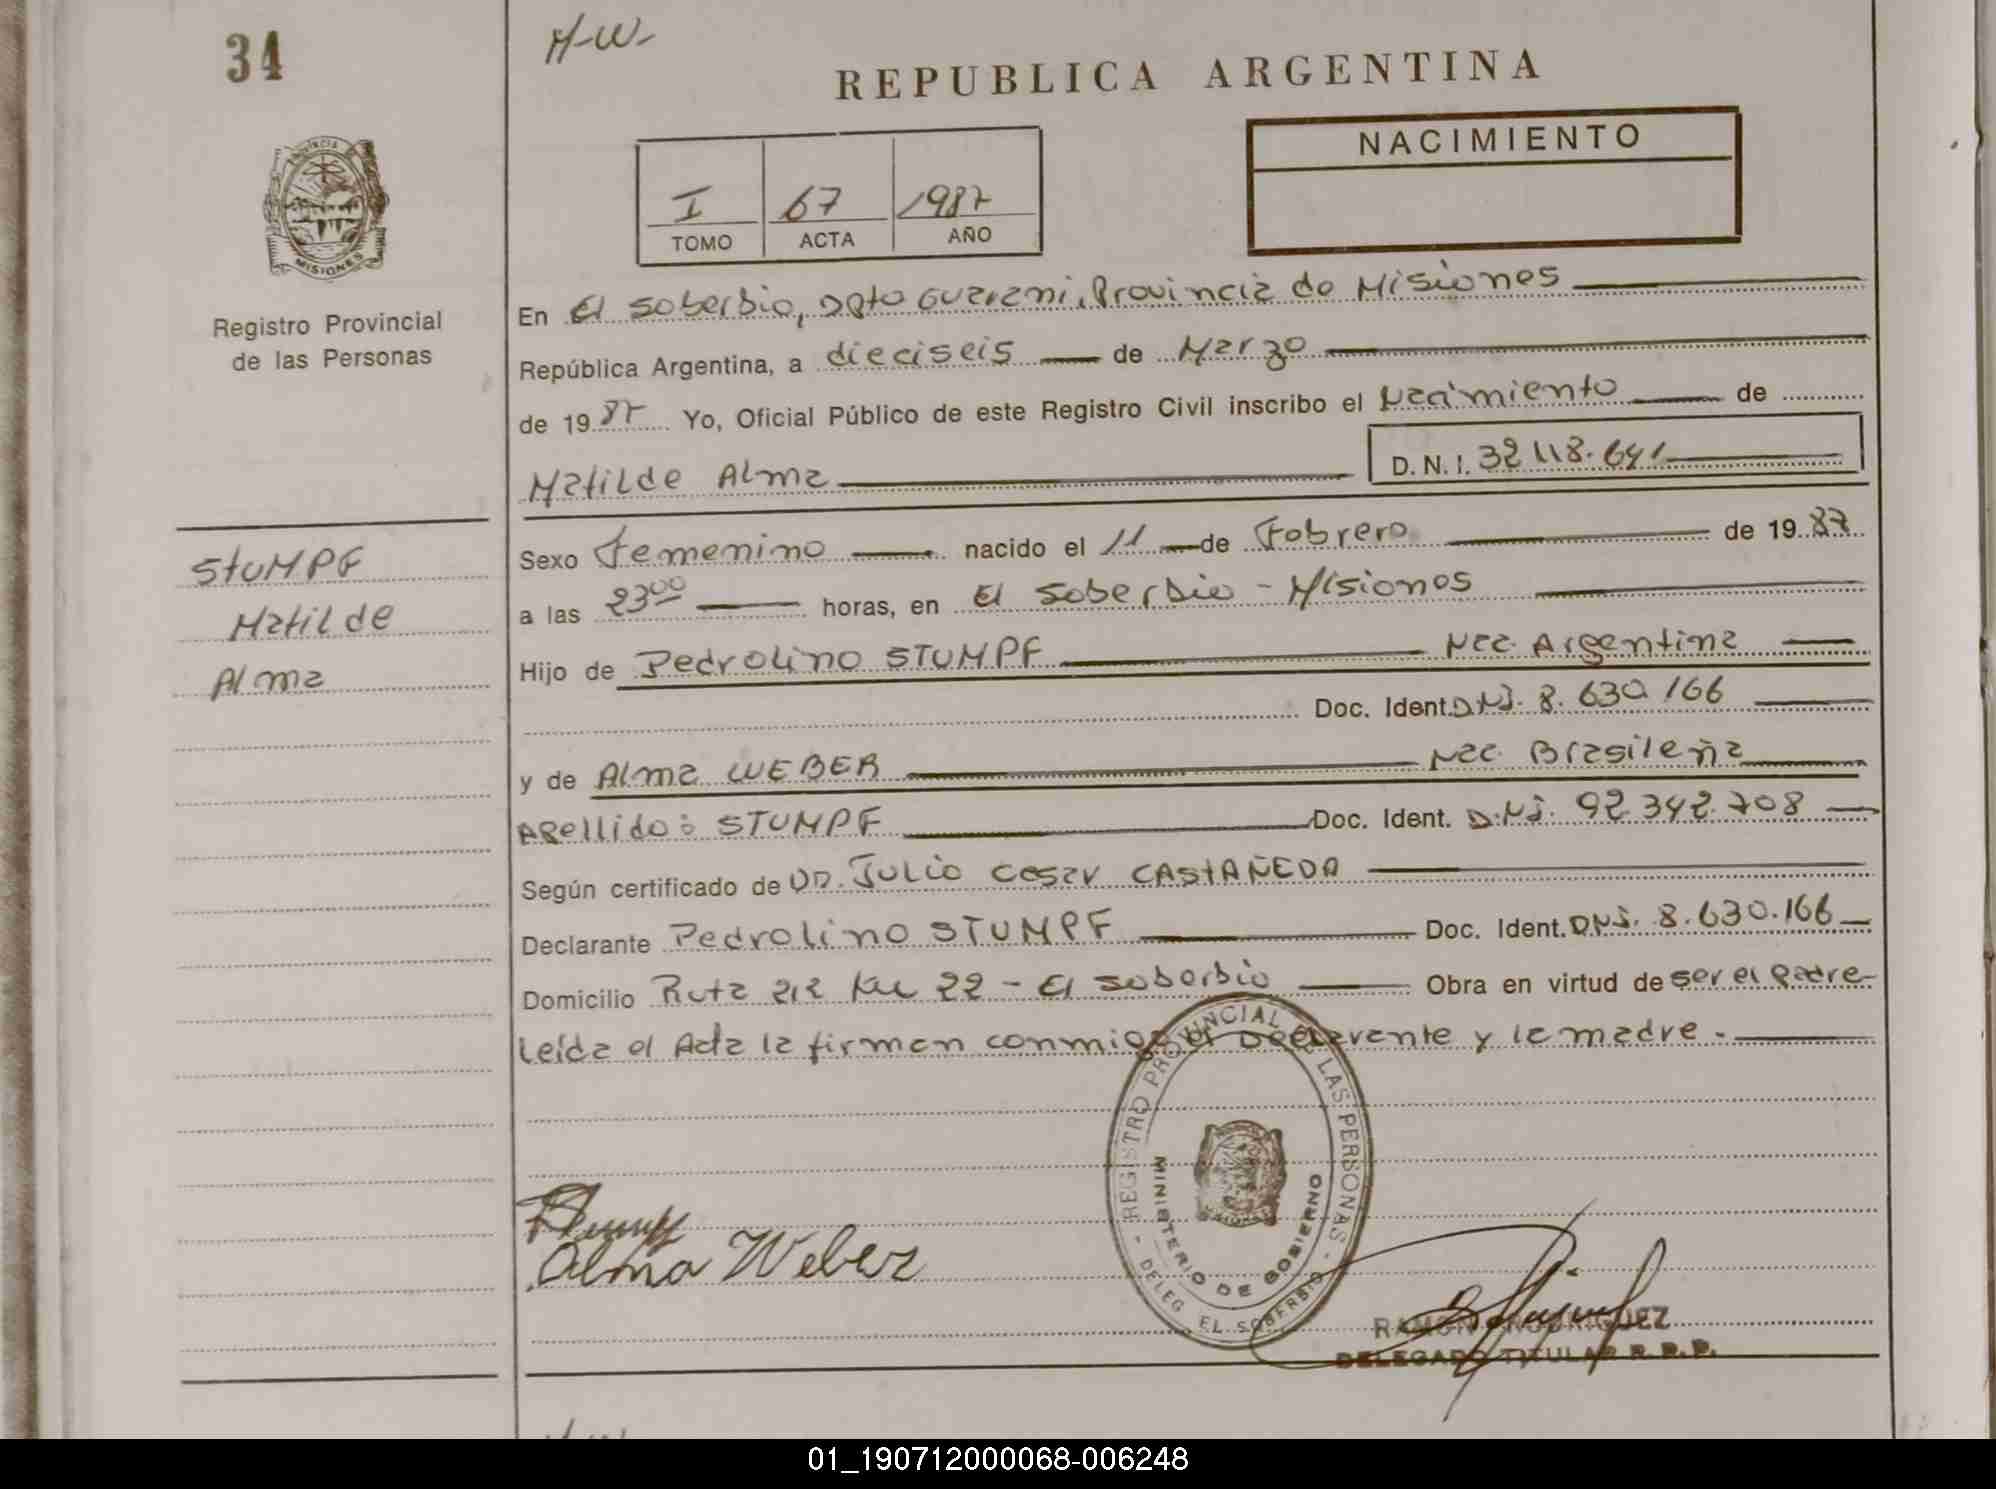 34
H-W-
REPUBLICA ARGENTINA
NACIMIENTO
I 67 1987
TOMO ACTA AÑO
PROVINCIA DE
MISIONES
Registro Provincial
de las Personas
En El Soberbio, Dpto Guarani, Provincia de Misiones
República Argentina, a dieciseis de Marzo
de 1987 Yo, Oficial Público de este Registro Civil inscribo el Nacimiento de
Matilde Alma D.N.I. 32 118.641
Sexo Femenino nacido el 11 de Febrero de 1987
a las 23 00 horas, en El Soberbio - Misiones
Hijo de Pedrolino STUMPF Nac. Argentina
Doc. Ident. DNI. 8.630.166
y de Alma WEBER Nac. Brasileña
Apellido: STUMPF Doc. Ident. D.NI. 92.342.708
Según certificado de DR. Julio Cesar CASTAÑEDA
Declarante Pedrolino STUMPF Doc. Ident. DNI. 8.630.166
Domicilio Ruta 212 Km 22 - El Soberbio Obra en virtud de ser el padre
Leída el Acta la firman conmigo el Declarante y la madre.-
STUMPF
Matilde
Alma
REGISTRO PROVINCIAL DE LAS PERSONAS
MINISTERIO DE GOBIERNO
DELEG EL SOBERBIO
Alma Weber
RAMON RODRIGUEZ
DELEGADO TITULAR R.P.P.
01_190712000068-006248